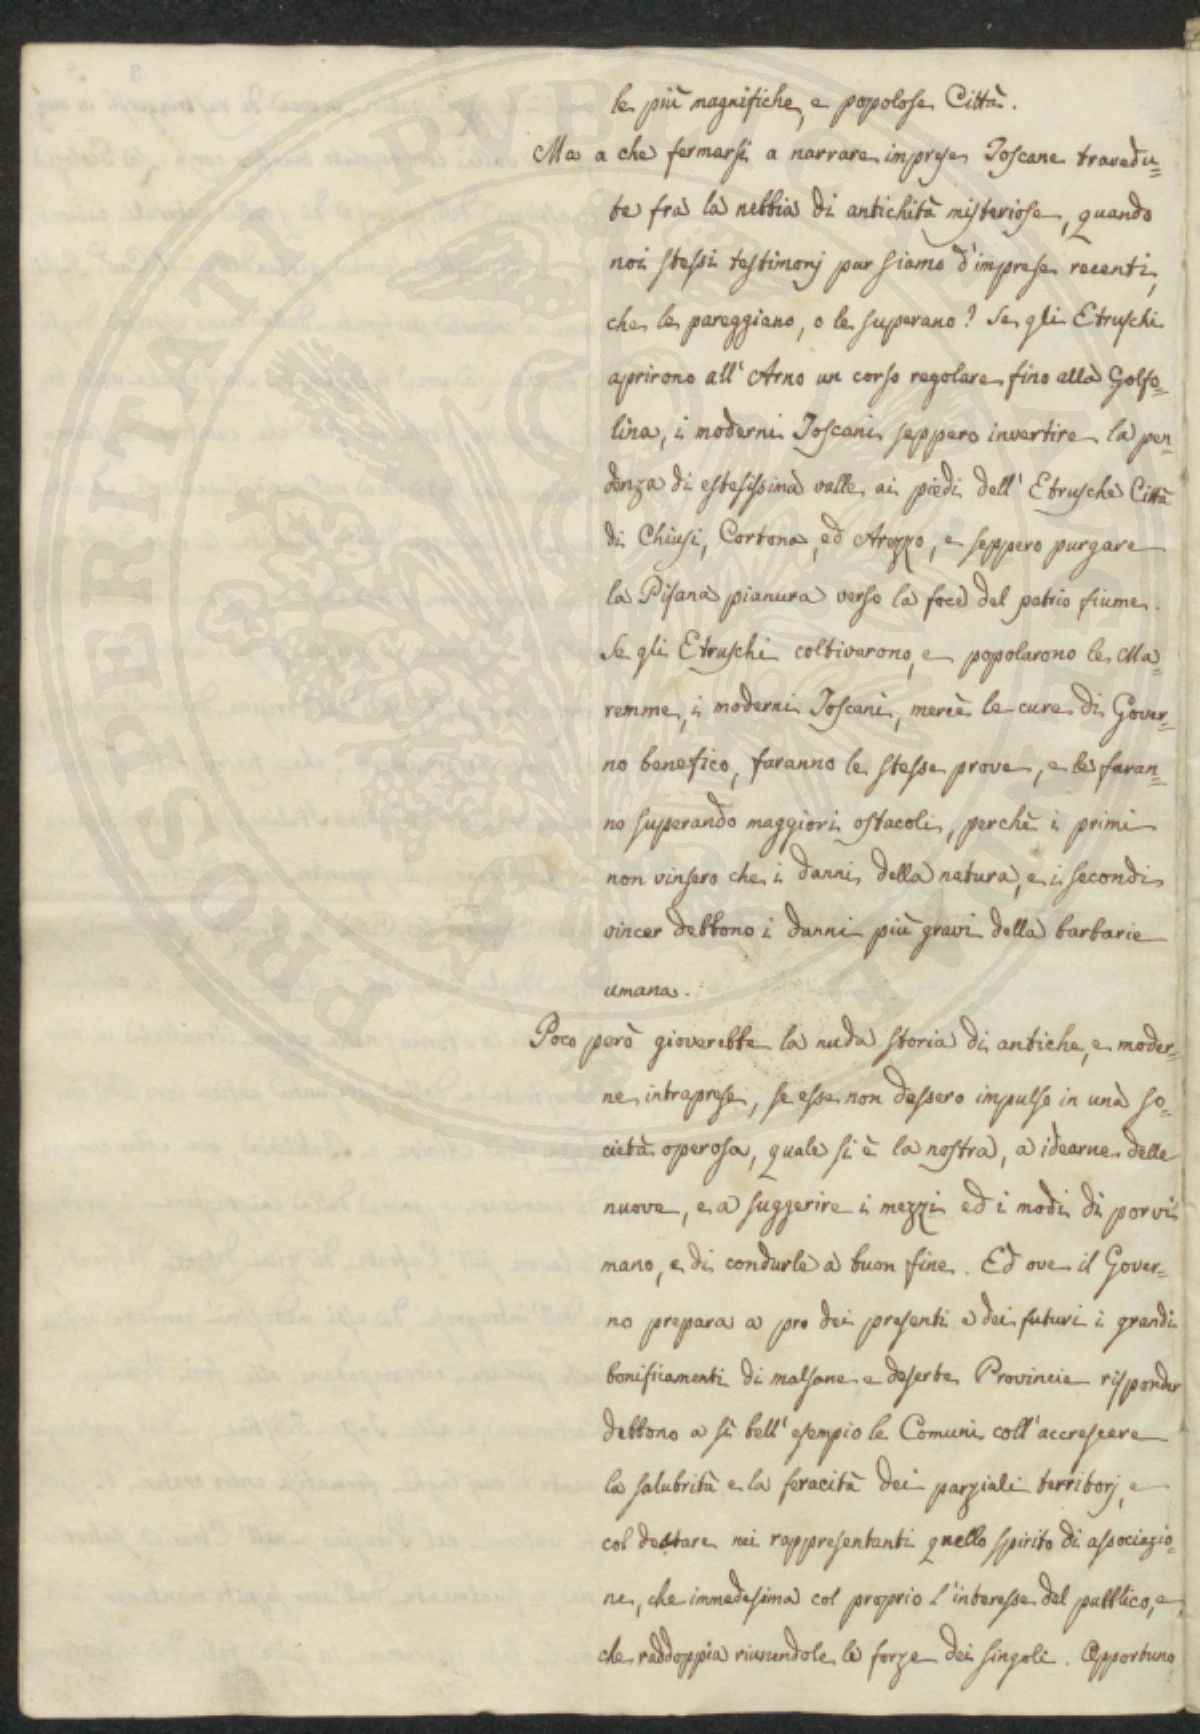 le più magnifiche, e popolose Città.
Ma a che fermarsi a narrare imprese Toscane travedu=
te frà la nebbia di antichità misteriose, quando
noi stessi testimonj pur siamo d'imprese recenti,
che le pareggiano, o le superano? Se gli Etruschi
aprirono all'Arno un corso regolare fino alla Golfo=
lina, i moderni Toscani seppero invertire la pen=
denza di estesissima valle ai piedi dell'Etrusche Città
di Chiusi, Cortona, ed Arezzo, e seppero purgare
la Pisana pianura verso la foce del patrio fiume.
Se gli Etruschi coltivarono, e popolarono le Ma=
remme, i moderni Toscani, mercè le cure di Gover=
no benefico, faranno le stesse prove, e le faran=
no superando maggiori ostacoli, perchè i primi
non vinsero che i danni della natura, e i secondi
vincer debbono i danni più gravi della barbarie
umana.
Poco però gioverebbe la nuda storia di antiche, e moder=
ne intraprese, se esse non dessero impulso in una so=
cietà operosa, quale si è la nostra, a idearne delle
nuove, e a suggerire i mezzi ed i modi di porvi
mano, e di condurle a buon fine. Ed ove il Gover=
no prepara a pro dei presenti e dei futuri i grandi
bonificamenti di malsane e deserte Provincie risponder
debbono a sì bell'esempio le Comuni coll'accrescere
la salubrità e la feracità dei parziali territorj, e
col destare nei rappresentanti quello spirito di associazio=
ne, che immedesima col proprio l'interesse del pubblico, e
che raddoppia riunendole le forze dei singoli. Opportuno
PROSPERITATI PVBLICAE